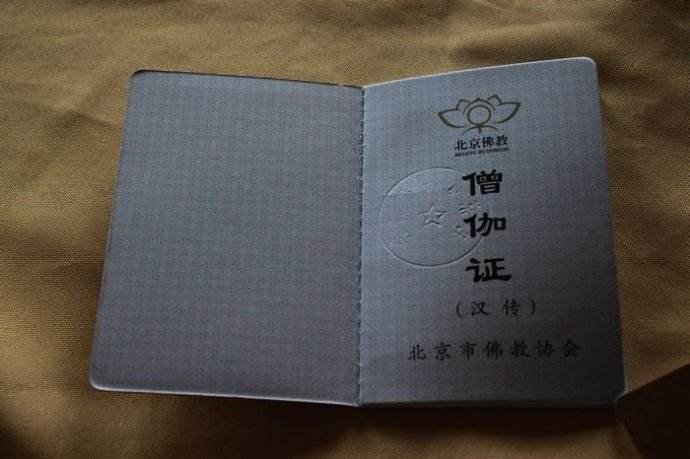 北京佛教
BEIJING BUDDHISM
僧伽证
（汉传）
北京市佛教协会